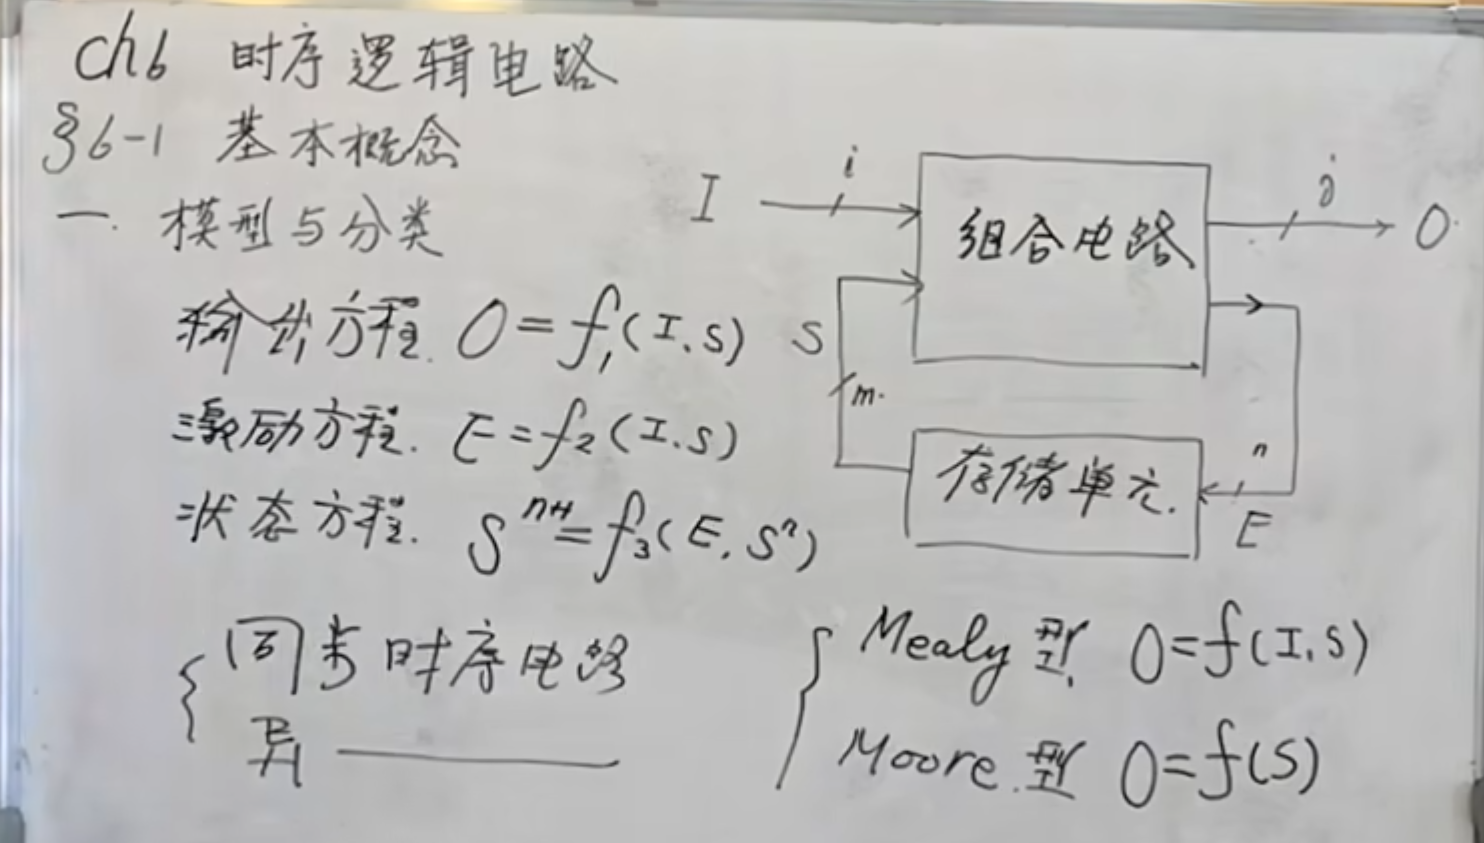 ch6 时序逻辑电路
§6-1 基本概念
一. 模型与分类
输出方程. O=f₁(I.S)
激励方程. E=f₂(I.S)
状态方程. Sⁿ⁺¹=f₃(E,Sⁿ)
{ 同步时序电路
异 ————
I
i
组合电路
j
O
S
m.
存储单元.
n
E
{ Mealy 型. O=f(I,S)
Moore.型 O=f(S)